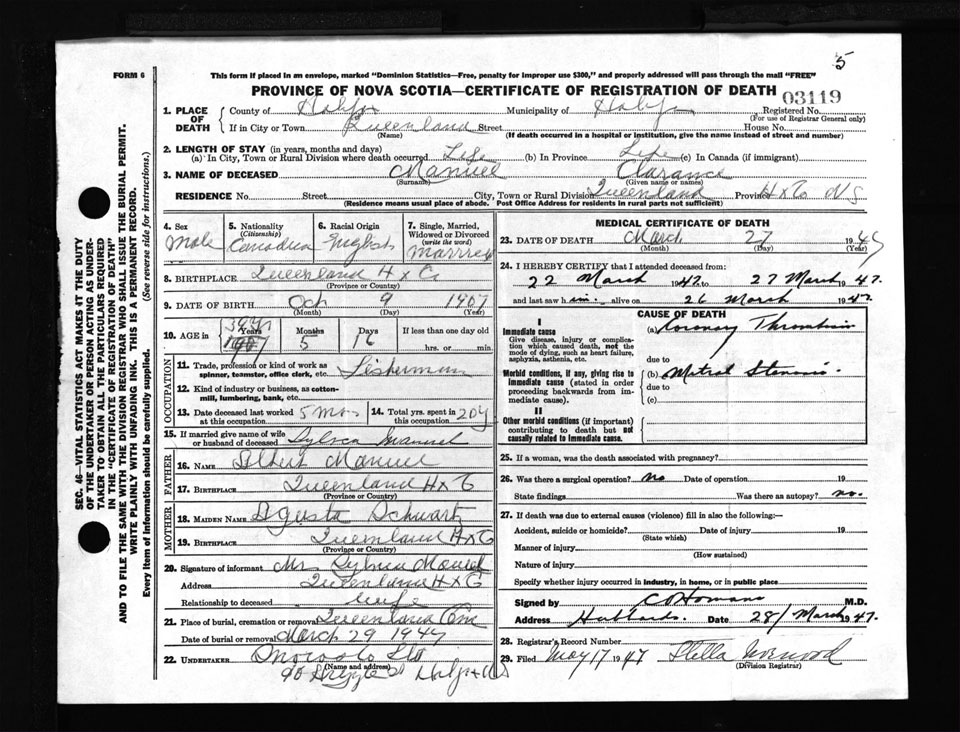 5
FORM 6
This form if placed in an envelope, marked "Dominion Statistics—Free, penalty for improper use $300," and properly addressed will pass through the mail "FREE"
PROVINCE OF NOVA SCOTIA—CERTIFICATE OF REGISTRATION OF DEATH
03119
1. PLACE OF DEATH
County of Halifax Municipality of Halifax Registered No.
(For use of Registrar General only)
If in City or Town Queenland Street House No.
(Name) (If death occurred in a hospital or institution, give the name instead of street and number)
2. LENGTH OF STAY (in years, months and days)
(a) In City, Town or Rural Division where death occurred Life (b) In Province Life (c) In Canada (if immigrant)
3. NAME OF DECEASED Manuel Clarance
(Surname) (Given name or names)
RESIDENCE No. Street City, Town or Rural Division Queenland Province Hx Co NS
(Residence means usual place of abode. Post Office Address for residents in rural parts not sufficient)
4. Sex Male
5. Nationality (Citizenship) Canadian
6. Racial Origin English
7. Single, Married, Widowed or Divorced (write the word) Married
8. BIRTHPLACE Queenland Hx Co
(Province or Country)
9. DATE OF BIRTH Oct 9 1907
(Month) (Day) (Year)
10. AGE in Years Months 5 Days 16 If less than one day old
hrs. or min.
OCCUPATION
11. Trade, profession or kind of work as spinner, teamster, office clerk, etc. Fisherman
12. Kind of industry or business, as cotton-mill, lumbering, bank, etc.
13. Date deceased last worked at this occupation 5 mos
14. Total yrs. spent in this occupation 20 y
15. If married give name of wife or husband of deceased Sylvia Manuel
FATHER
16. NAME Albert Manuel
17. BIRTHPLACE Queenland Hx Co
(Province or Country)
MOTHER
18. MAIDEN NAME Agusta Schwartz
19. BIRTHPLACE Queenland Hx Co
(Province or Country)
20. Signature of informant Mrs Sylvia Manuel
Address Queenland Hx Co
Relationship to deceased wife
21. Place of burial, cremation or removal Queenland Cem
Date of burial or removal March 29 1947
22. UNDERTAKER Ltd
(Name and address)
90 St Halifax NS
MEDICAL CERTIFICATE OF DEATH
23. DATE OF DEATH March 27 1947
(Month) (Day) (Year)
24. I HEREBY CERTIFY that I attended deceased from:
22 March 1947 to 27 March 1947
and last saw him alive on 26 March 1947
CAUSE OF DEATH
I
Immediate cause
Give disease, injury or complication which caused death, not the mode of dying, such as heart failure, asphyxia, asthenia, etc.
(a) Coronary Thrombosis
due to
Morbid conditions, if any, giving rise to immediate cause (stated in order proceeding backwards from immediate cause).
(b) Mitral Stenosis
due to
(c)
II
Other morbid conditions (if important) contributing to death but not causally related to immediate cause.
25. If a woman, was the death associated with pregnancy?
26. Was there a surgical operation? no Date of operation 19
State findings Was there an autopsy? no.
27. If death was due to external causes (violence) fill in also the following:—
Accident, suicide or homicide? Date of injury 19
(State which)
Manner of injury
(How sustained)
Nature of injury
Specify whether injury occurred in industry, in home, or in public place
Signed by M.D.
Address Hubbards. Date 28/ March 1947.
28. Registrar's Record Number
29. Filed May 17 1947 Stella Norwood
(Division Registrar)
SEC. 46—VITAL STATISTICS ACT MAKES IT THE DUTY
OF THE UNDERTAKER OR PERSON ACTING AS UNDER-
TAKER TO OBTAIN ALL THE PARTICULARS REQUIRED
IN THE "CERTIFICATE OF REGISTRATION OF DEATH"
AND TO FILE THE SAME WITH THE DIVISION REGISTRAR WHO SHALL ISSUE THE BURIAL PERMIT.
WRITE PLAINLY WITH UNFADING INK. THIS IS A PERMANENT RECORD.
Every item of Information should be carefully supplied. (See reverse side for instructions.)